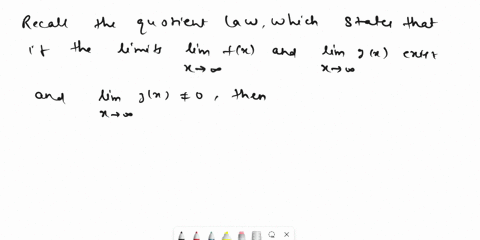 Recall the quotient law, which states that
if the limits lim f(x) and lim g(x) exist
x→∞ x→∞
and lim g(x) ≠ 0, then
x→∞